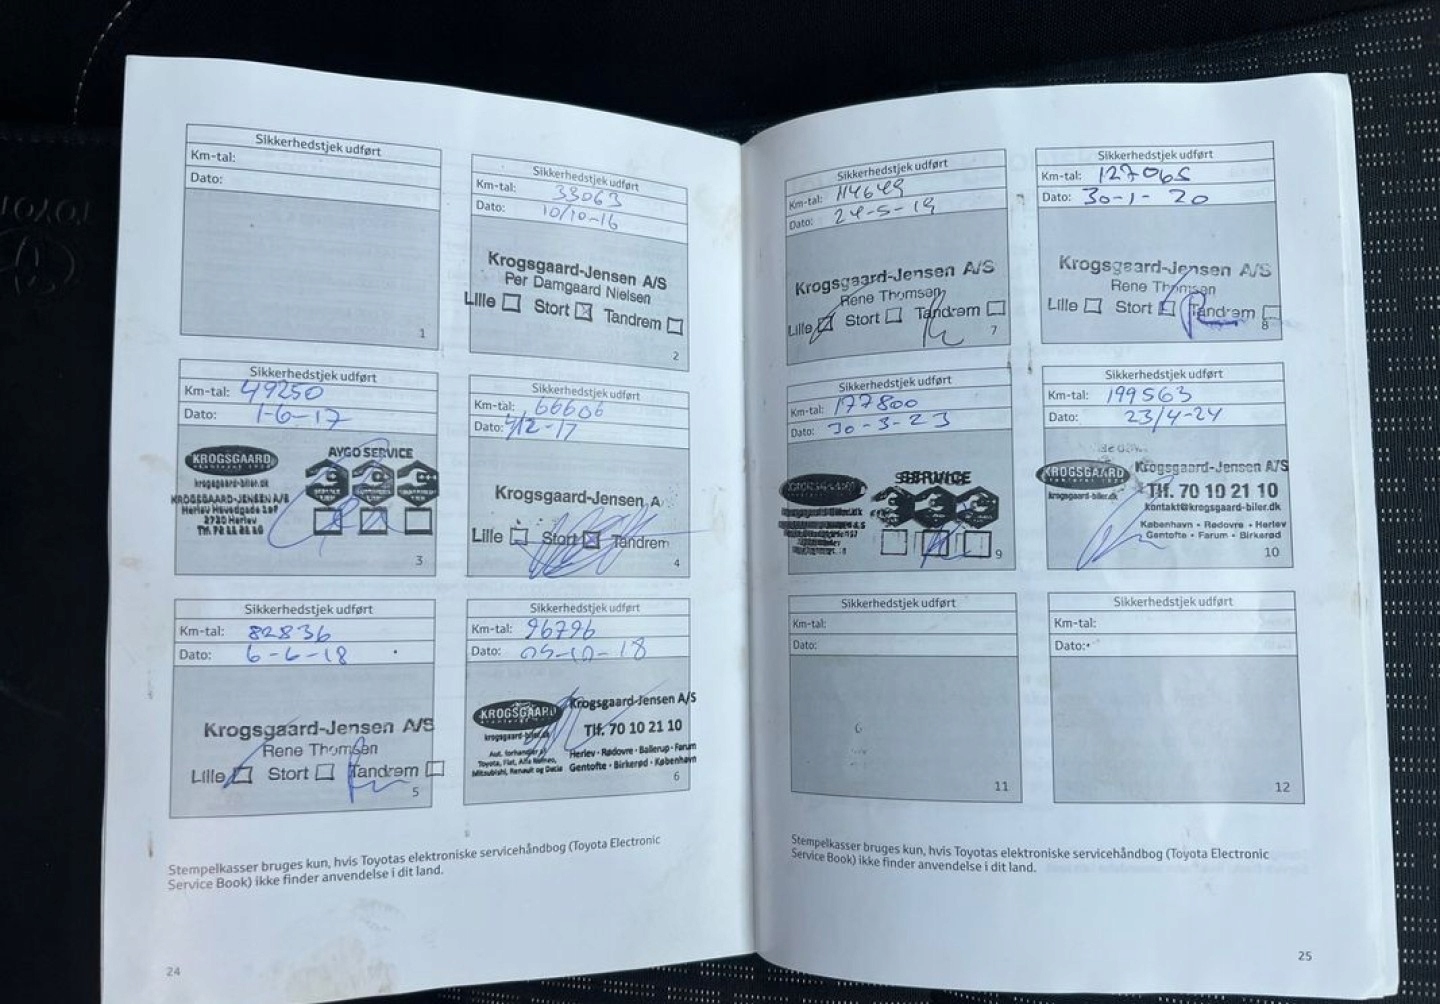 Sikkerhedstjek udført
Km-tal:
Dato:
1
Sikkerhedstjek udført
Km-tal: 33063
Dato: 10/10-16
Krogsgaard-Jensen A/S
Per Damgaard Nielsen
Lille Stort Tandrem
2
Sikkerhedstjek udført
Km-tal: 49250
Dato: 1-6-17
KROGSGAARD
krogsgaard-biler.dk
KROGSGAARD-JENSEN A/S
Herlev Hovedgade
2730 Herlev
Tlf. 70 10 21 10
AYGO SERVICE
3
Sikkerhedstjek udført
Km-tal: 66606
Dato: 4/12-17
Krogsgaard-Jensen A
Lille Stort Tandrem
4
Sikkerhedstjek udført
Km-tal: 82836
Dato: 6-6-18
Krogsgaard-Jensen A/S
Rene Thomsen
Lille Stort Tandrem
5
Sikkerhedstjek udført
Km-tal: 96796
Dato: 05-10-18
KROGSGAARD
krogsgaard-biler.dk
Aut. forhandler af
Toyota, Fiat, Alfa Romeo,
Mitsubishi, Renault og Dacia
Krogsgaard-Jensen A/S
Tlf. 70 10 21 10
Herlev · Rødovre · Ballerup · Farum
Gentofte · Birkerød · København
6
Stempelkasser bruges kun, hvis Toyotas elektroniske servicehåndbog (Toyota Electronic
Service Book) ikke finder anvendelse i dit land.
24
Sikkerhedstjek udført
Km-tal: 114649
Dato: 24-5-19
Krogsgaard-Jensen A/S
Rene Thomsen
Lille Stort Tandrem
7
Sikkerhedstjek udført
Km-tal: 127065
Dato: 30-1-20
Krogsgaard-Jensen A/S
Rene Thomsen
Lille Stort Tandrem
8
Sikkerhedstjek udført
Km-tal: 177800
Dato: 30-3-23
SERVICE
9
Sikkerhedstjek udført
Km-tal: 199563
Dato: 23/4-24
KROGSGAARD
krogsgaard-biler.dk
Krogsgaard-Jensen A/S
Tlf. 70 10 21 10
kontakt@krogsgaard-biler.dk
København · Rødovre · Herlev
Gentofte · Farum · Birkerød
10
Sikkerhedstjek udført
Km-tal:
Dato:
11
Sikkerhedstjek udført
Km-tal:
Dato:
12
Stempelkasser bruges kun, hvis Toyotas elektroniske servicehåndbog (Toyota Electronic
Service Book) ikke finder anvendelse i dit land.
25